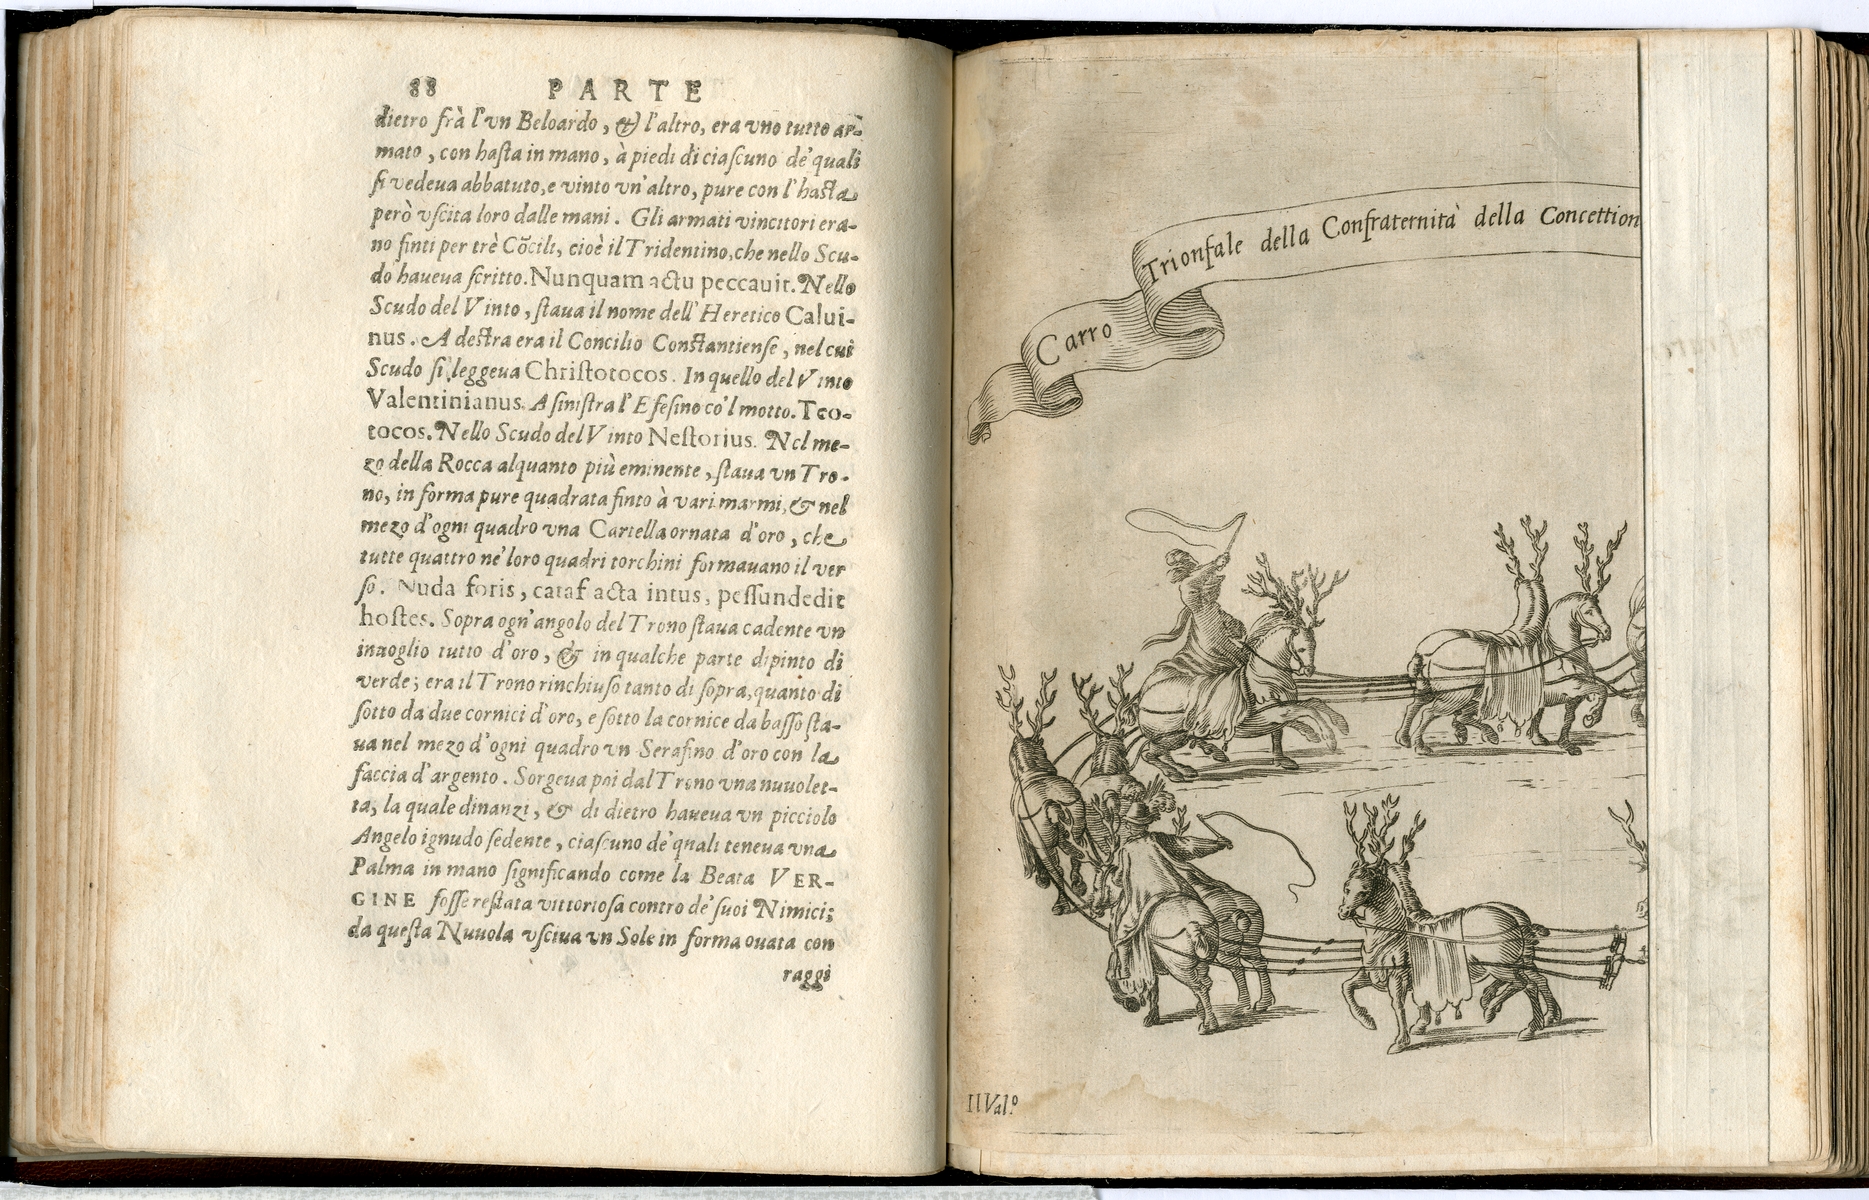 88 PARTE
dietro frà l'vn Beloardo, & l'altro, era vno tutto ar-
mato, con hasta in mano, à piedi di ciascuno de' quali
si vedeua abbatuto, e vinto vn'altro, pure con l'hasta
però vscita loro dalle mani. Gli armati vincitori era-
no finti per trè Cõcili, cioè il Tridentino, che nello Scu-
do haueua scritto. Nunquam actu peccauit. Nello
Scudo del Vinto, staua il nome dell'Heretico Calui-
nus. A destra era il Concilio Constantiense, nel cui
Scudo si leggeua Christotocos. In quello del Vinto
Valentinianus. A sinistra l'Efesino co'l motto. Teo-
tocos. Nello Scudo del Vinto Nestorius. Nel me-
zo della Rocca alquanto più eminente, staua vn Tro-
no, in forma pure quadrata finto à vari marmi, & nel
mezo d'ogni quadro vna Cartella ornata d'oro, che
tutte quattro ne' loro quadri torchini formauano il ver
so. Nuda foris, catafacta intus, pessundedit
hostes. Sopra ogn'angolo del Trono staua cadente vn
inuoglio tutto d'oro, & in qualche parte dipinto di
verde; era il Trono rinchiuso tanto di sopra, quanto di
sotto da due cornici d'oro, e sotto la cornice da basso sta-
ua nel mezo d'ogni quadro vn Serafino d'oro con la
faccia d'argento. Sorgeua poi dal Trono vna nuuolet-
ta, la quale dinanzi, & di dietro haueua vn picciolo
Angelo ignudo sedente, ciascuno de' quali teneua vna
Palma in mano significando come la Beata VER-
GINE fosse restata vittoriosa contro de' suoi Nimici;
da questa Nuuola vsciua vn Sole in forma ouata con
raggi
Carro Trionfale della Confraternità della Concettion
IlVal.º